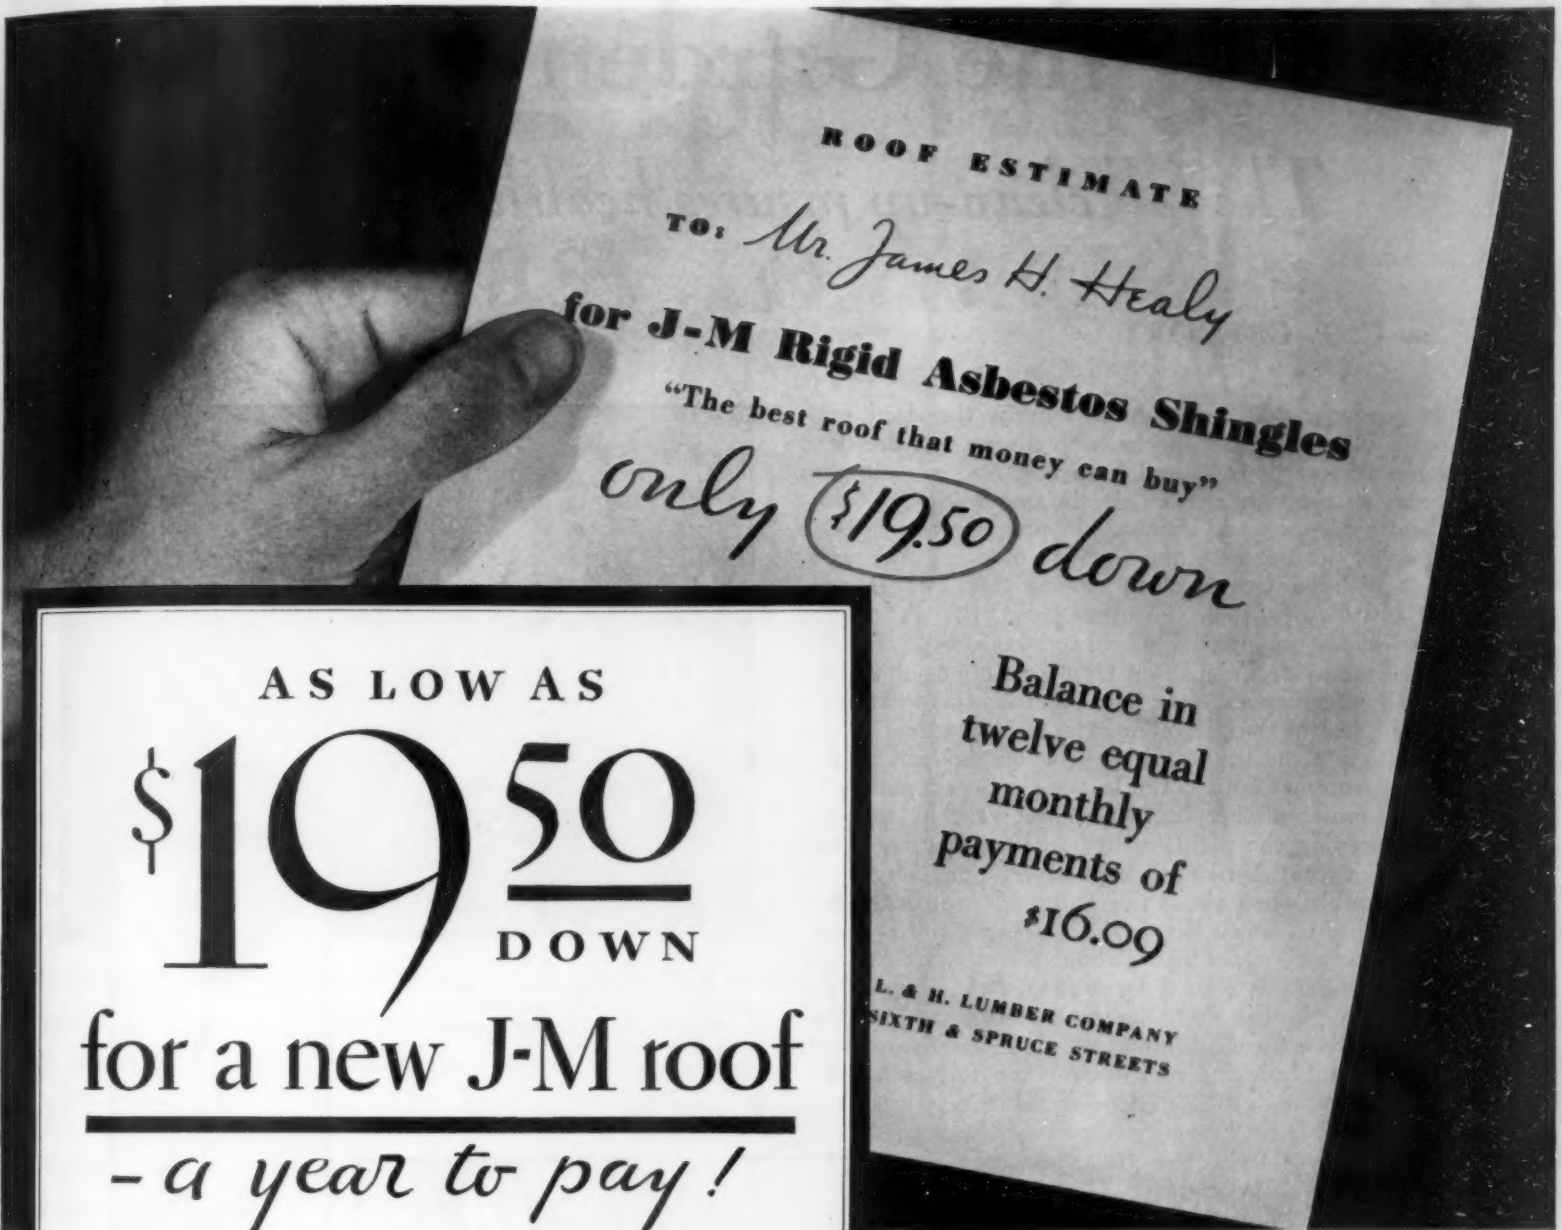 ROOF ESTIMATE
TO: Mr. James H. Healy
for J-M Rigid Asbestos Shingles
“The best roof that money can buy”
only $19.50 down
Balance in
twelve equal
monthly
payments of
$16.09
L. & H. LUMBER COMPANY
SIXTH & SPRUCE STREETS
AS LOW AS
$19 50
DOWN
for a new J-M roof
- a year to pay!